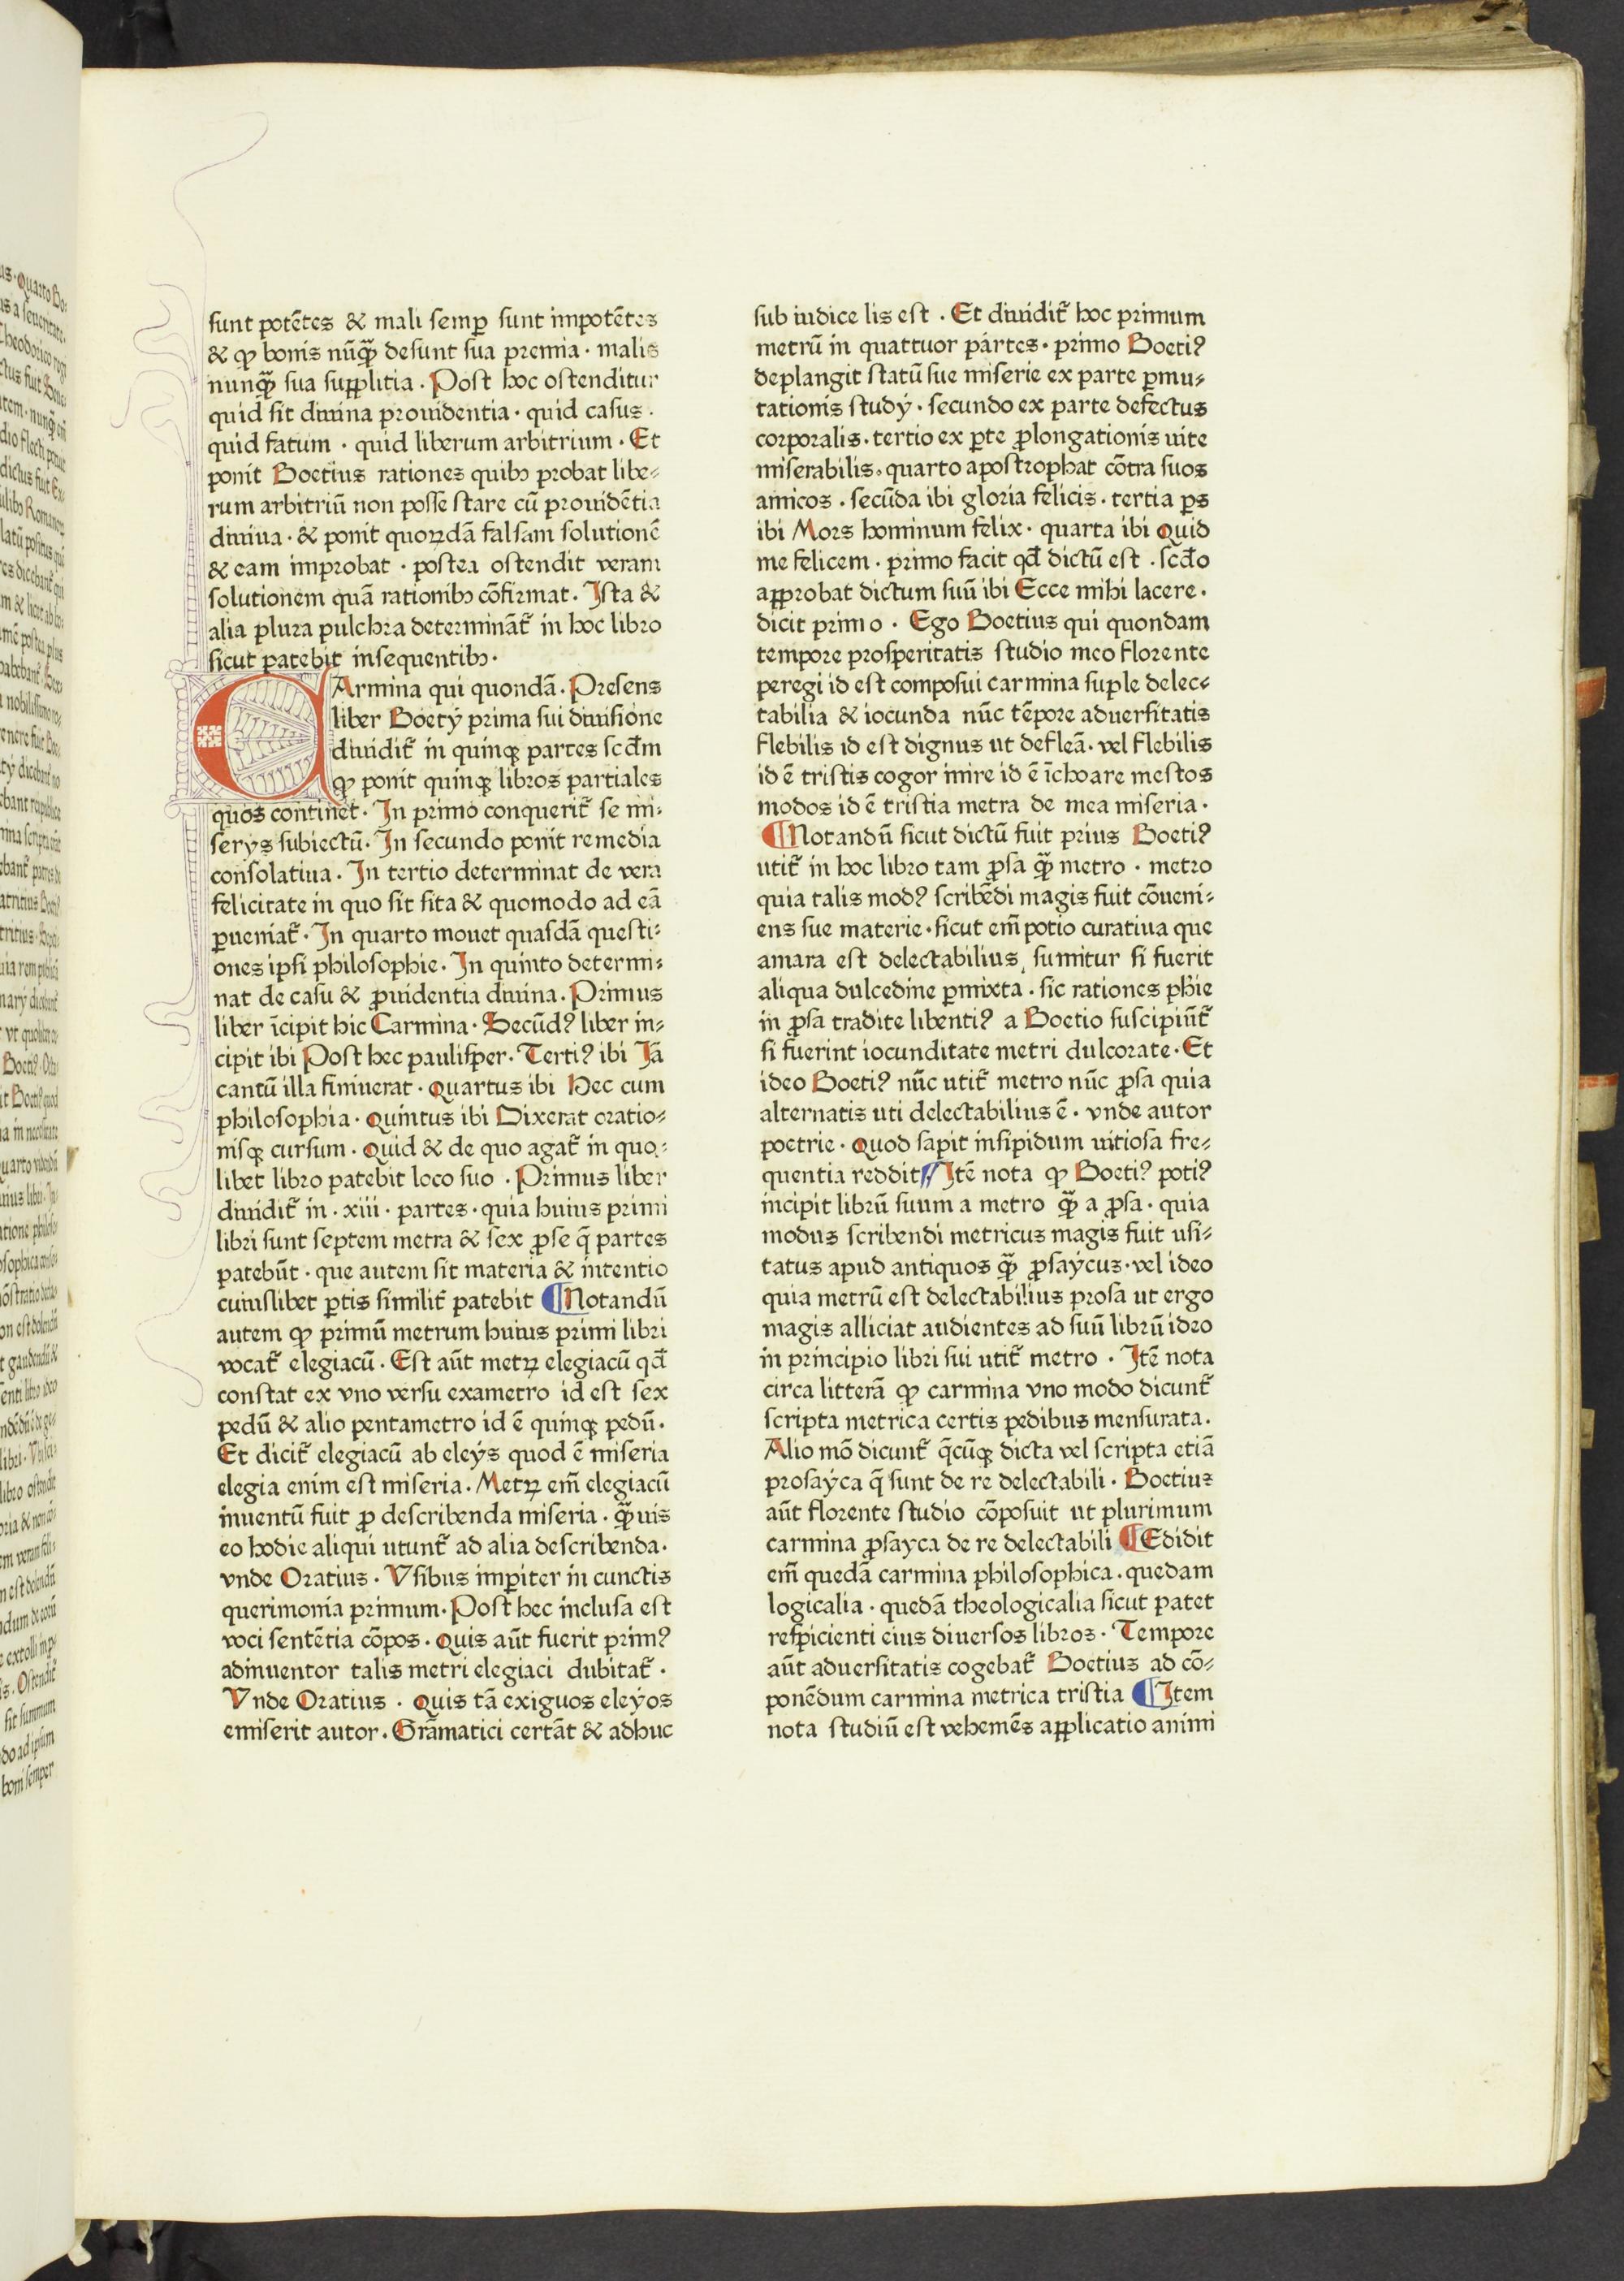 sunt potētes & mali semꝑ sunt impotētes
& ꝙ bonis nūꝙ̄ desunt sua premia · malis
nunꝙ̄ sua supplitia . Post hoc ostenditur
quid sit diuina prouidentia · quid casus .
quid fatum · quid liberum arbitrium · Et
ponit Boetius rationes quibꝫ probat libe⸗
rum arbitriū non posse stare cū prouidētia
diuina · & ponit quoꝝdā falsam solutionē
& eam improbat · postea ostendit veram
solutionem quā rationibꝫ cōfirmat . Ista &
alia plura pulchra determināt̄ in hoc libro
sicut patebit insequentibꝫ .
CArmina qui quondā . Presens
liber Boetÿ prima sui diuisione
diuidit̄ in quinqꝫ partes scd̄m
ꝙ ponit quinqꝫ libros partiales
quos continet . In primo conquerit̄ se mi⸗
serÿs subiectū . In secundo ponit remedia
consolatiua . In tertio determinat de vera
felicitate in quo sit sita & quomodo ad eā
ꝑueniat̄ . In quarto mouet quasdā questi⸗
ones ipsi philosophie . In quinto determi⸗
nat de casu & ꝓuidentia diuina . Primus
liber īcipit hic Carmina · Secūdꝰ liber in⸗
cipit ibi Post hec paulisꝑ . Tertiꝰ ibi Iā
cantū illa finiuerat · Quartus ibi Hec cum
philosophia . Quintus ibi Dixerat oratio⸗
nisqꝫ cursum . Quid & de quo agat̄ in quo⸗
libet libro patebit loco suo . Primus liber
diuidit̄ in · xiii · partes · quia huius primi
libri sunt septem metra & sex ꝓse q̄ partes
patebūt · que autem sit materia & intentio
cuiuslibet ꝑtis similit̄ patebit ¶Notandū
autem ꝙ primū metrum huius primi libri
vocat̄ elegiacū . Est aūt metꝝ elegiacū qd̄
constat ex vno versu exametro id est sex
pedū & alio pentametro id ē quinqꝫ pedū .
Et dicit̄ elegiacū ab eleÿs quod ē miseria
elegia enim est miseria . Metꝝ em̄ elegiacū
inuentū fuit ꝓ describenda miseria . ꝙ̄uis
eo hodie aliqui utunt̄ ad alia describenda .
vnde Oratius . Vsibus impariter in cunctis
querimonia primum . Post hec inclusa est
voci sentētia cōpos . Quis aūt fuerit primꝰ
adinuentor talis metri elegiaci dubitat̄ .
Vnde Oratius . Quis tā exiguos eleÿos
emiserit autor . Grāmatici certāt & adhuc
sub iudice lis est . Et diuidit̄ hoc primum
metrū in quattuor partes . primo Boetiꝰ
deplangit statū sue miserie ex parte ꝑmu⸗
tationis studÿ · secundo ex parte defectus
corporalis . tertio ex ꝑte ꝓlongationis uite
miserabilis . quarto apostrophat cōtra suos
amicos . secūda ibi gloria felicis . tertia ꝑs
ibi Mors hominum felix · quarta ibi Quid
me felicem · primo facit qd̄ dictū est . scd̄o
approbat dictum suū ibi Ecce mihi lacere .
dicit primo . Ego Boetius qui quondam
tempore prosperitatis studio meo florente
peregi id est composui carmina suple delec⸗
tabilia & iocunda nūc tēpore aduersitatis
flebilis id est dignus ut defleā . vel flebilis
id ē tristis cogor inire id ē īchoare mestos
modos id ē tristia metra de mea miseria .
¶Notandū sicut dictū fuit prius Boetiꝰ
utit̄ in hoc libro tam ꝓsa ꝙ̄ metro . metro
quia talis modꝰ scribēdi magis fuit cōueni⸗
ens sue materie . sicut em̄ potio curatiua que
amara est delectabilius sumitur si fuerit
aliqua dulcedine ꝑmixta . sic rationes phie
in ꝓsa tradite libentiꝰ a Boetio suscipiūt̄
si fuerint iocunditate metri dulcorate . Et
ideo Boetiꝰ nūc utit̄ metro nūc ꝓsa quia
alternatis uti delectabilius ē . vnde autor
poetrie . Quod sapit insipidum uitiosa fre⸗
quentia reddit ¶Itē nota ꝙ Boetiꝰ potiꝰ
incipit librū suum a metro ꝙ̄ a ꝓsa . quia
modus scribendi metricus magis fuit usi⸗
tatus apud antiquos ꝙ̄ ꝓsaÿcus . vel ideo
quia metrū est delectabilius prosa ut ergo
magis alliciat audientes ad suū librū ideo
in principio libri sui utit̄ metro . Itē nota
circa litterā ꝙ carmina vno modo dicunt̄
scripta metrica certis pedibus mensurata .
Alio mō dicunt̄ q̄cūqꝫ dicta vel scripta etiā
prosaÿca q̄ sunt de re delectabili . Boetius
aūt florente studio cōposuit ut plurimum
carmina ꝓsayca de re delectabili ¶Edidit
em̄ quedā carmina philosophica . quedam
logicalia . quedā theologicalia sicut patet
respicienti eius diuersos libros . Tempore
aūt aduersitatis cogebat̄ Boetius ad cō⸗
ponēdum carmina metrica tristia ¶Item
nota studiū est vehemēs applicatio animi